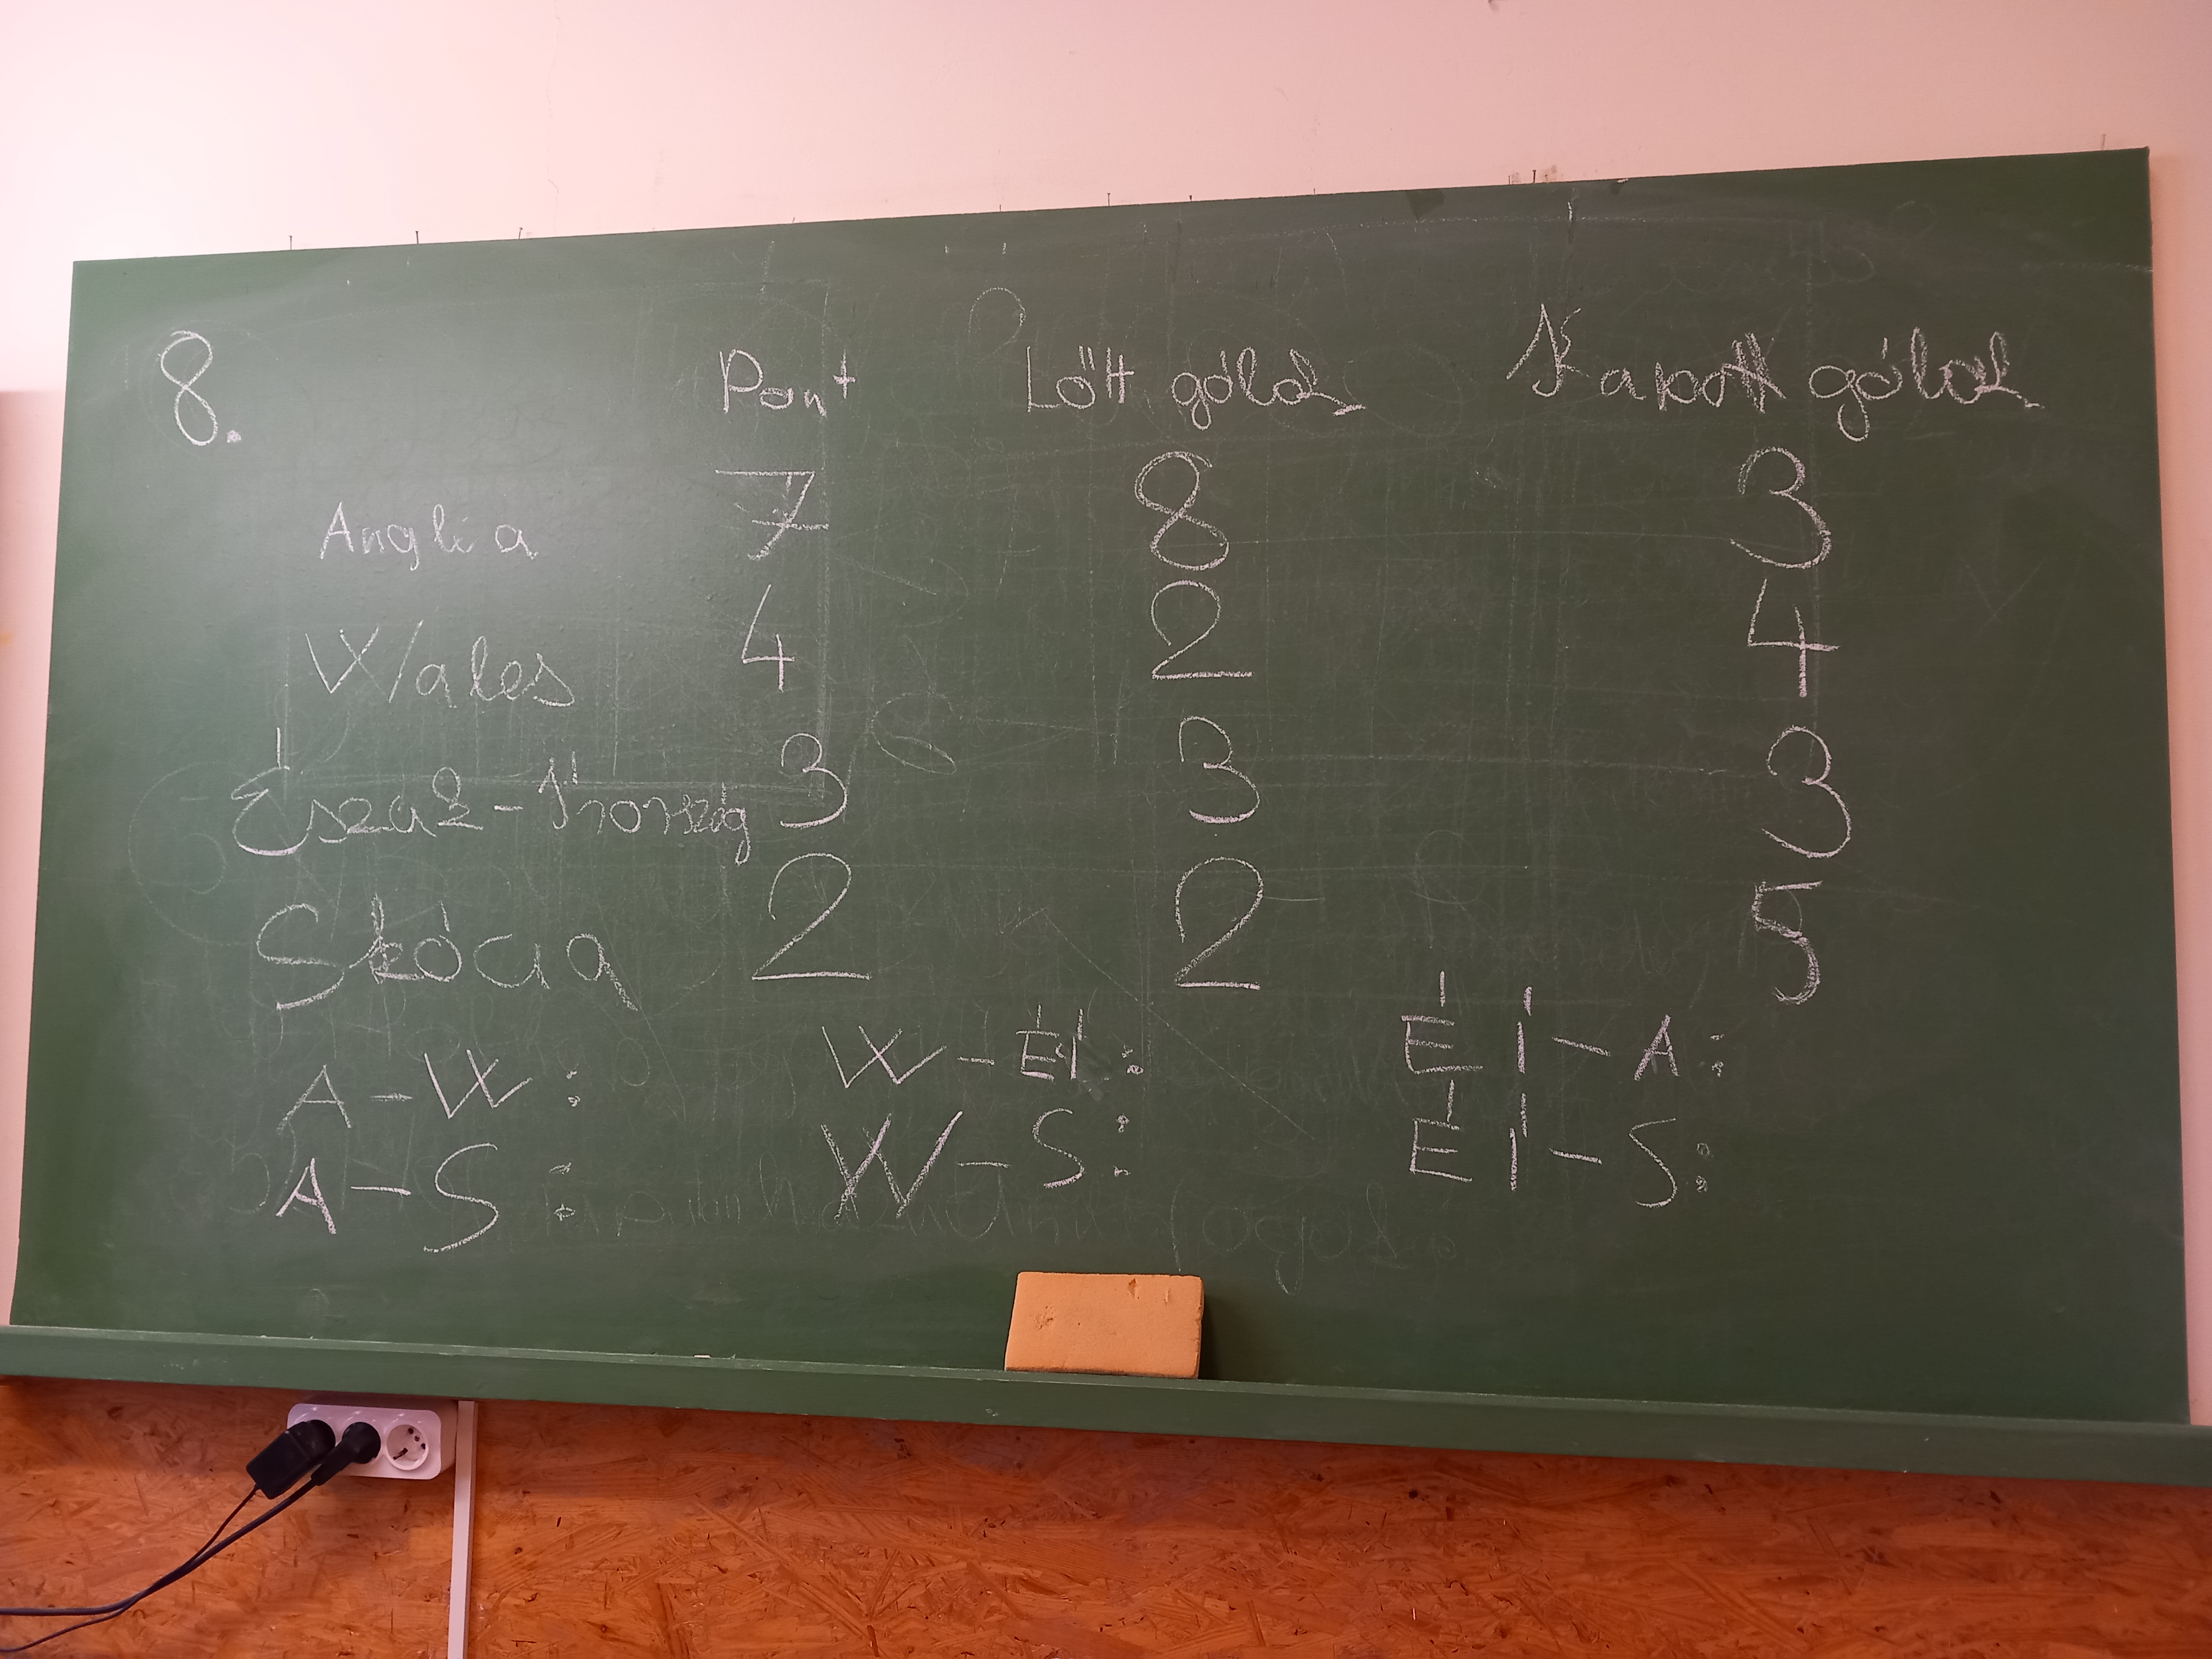 8. Pont Lőtt gólok Kapott gólok
Anglia 7 8 3
Wales 4 2 4
Észak-Írország 3 3 3
Skócia 2 2 5
A-W: W-ÉÍ: ÉÍ-A:
A-S: W-S: ÉÍ-S: